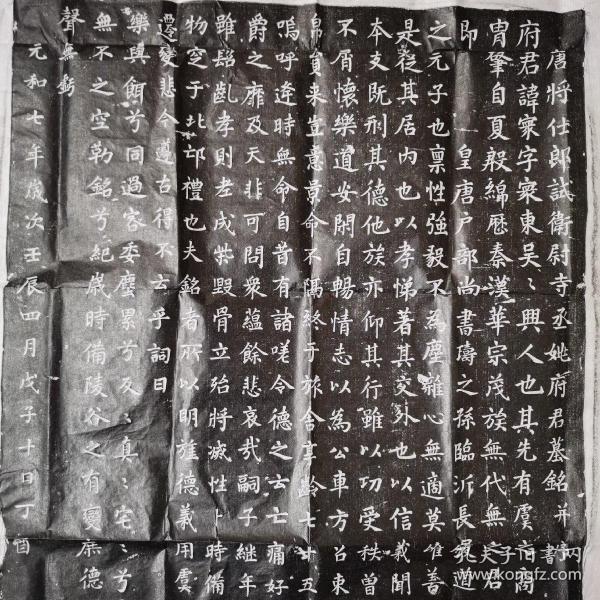 唐將仕郎試衛尉寺丞姚府君墓銘 并序
府君諱寀字寀東吳〻興人也其先有虞裔商
冑肇自夏殷綿歷秦漢華宗茂族無代無之君
即皇唐戶部尚書璹之孫臨沂長晃逈
之元子也稟性強毅不為塵雜心無適莫唯善
是從其居內也以孝悌著其交外也以信義聞
本支既刑其德他族亦仰其行雖以功受秩曾
不屑懷樂道安閑自暢情志以為公車方召東
帛賁来豈意景命不隔終于旅舍享齡七十五
嗚呼逢時無命自昔有諸嗟令德之云亡痛好
爵之靡及天非可問衆蘊餘悲哀哉嗣子継年
雖髫齓孝則老成柴毀骨立殆將滅性卜時備
物空于北邙禮也夫銘者所以明旌德義用虞
遷變悲今遵古得不云乎詞曰
樂與餌兮同過客委塵累兮反〻真〻宅〻兮
無不之空勒銘兮紀歲時備陵谷之有變庶德
聲無虧
元和七年歲次壬辰四月戊子十日丁酉
孔夫子旧书网
www.kongfz.com